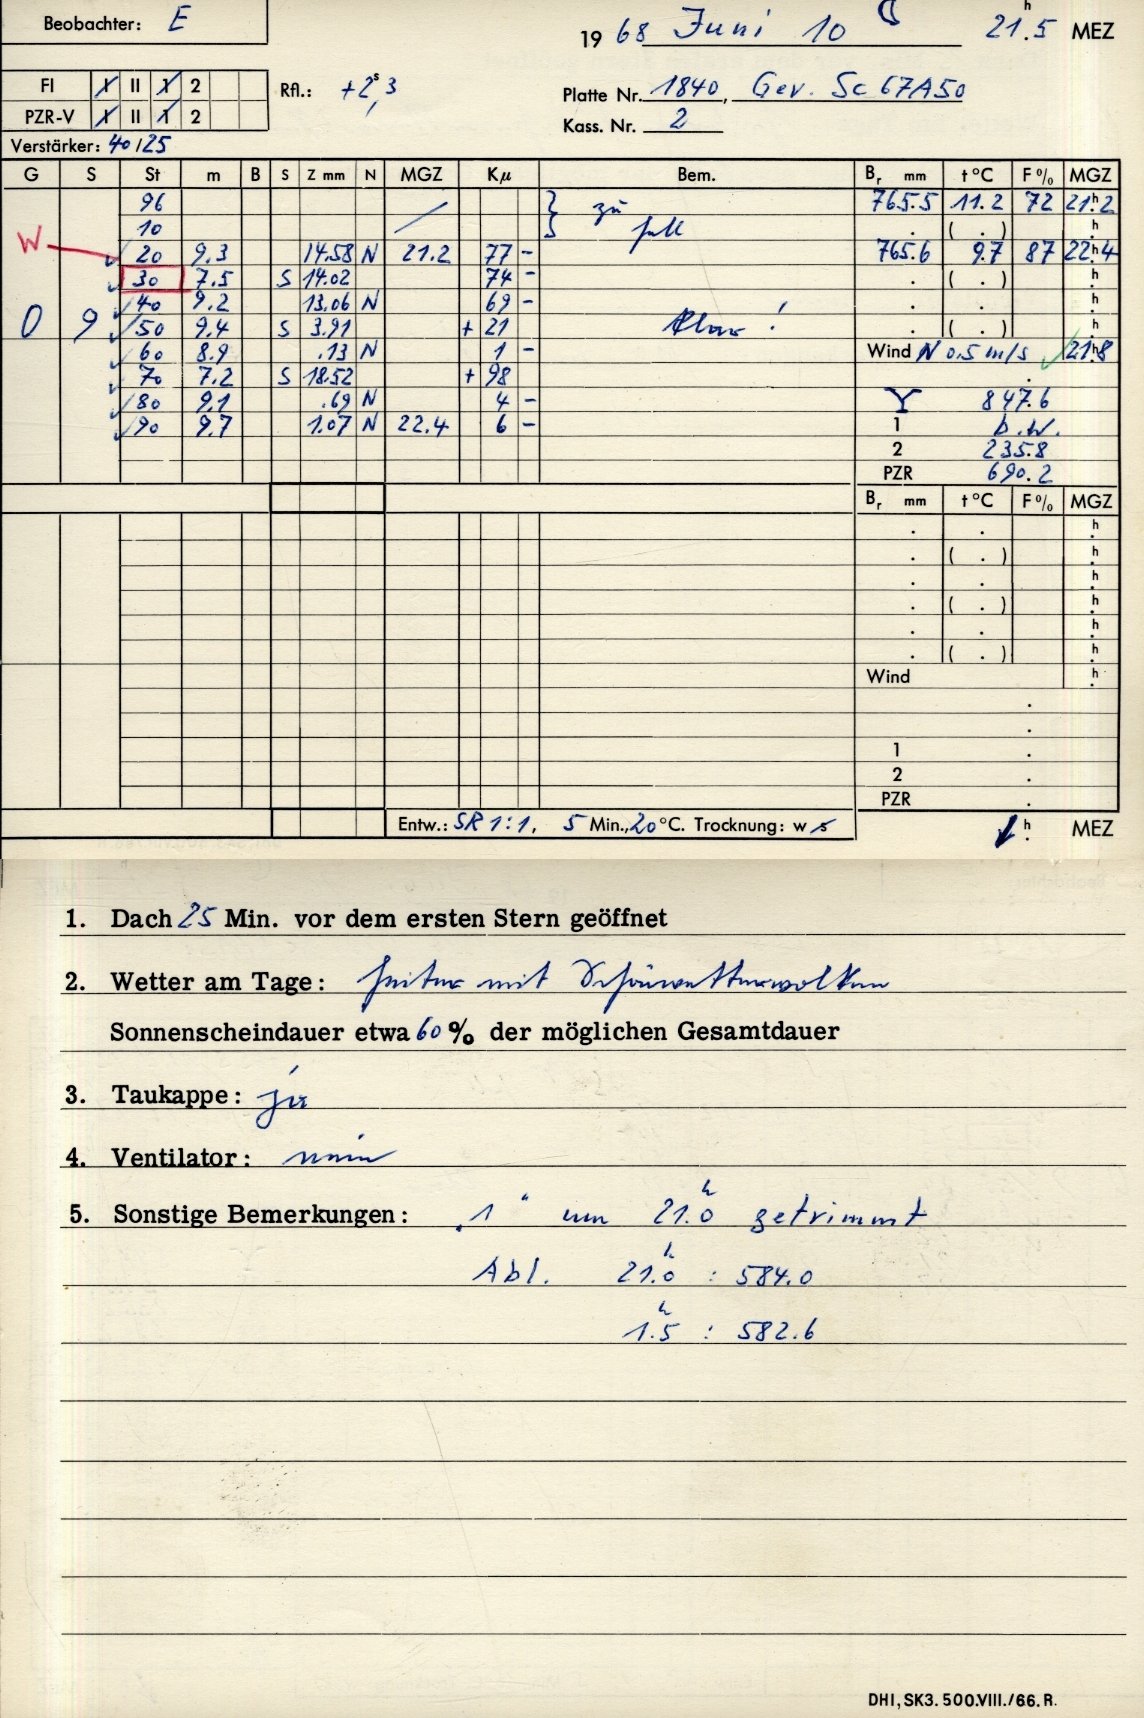 Beobachter: E
1968 Juni 10 21h.5 MEZ
FI I II 1 2
PZR-V I II 1 2
Rfl.: +2s,3
Platte Nr. 1840, Gev. Sc 67A50
Kass. Nr. 2
Verstärker: 40/25
G S St m B S Z mm N MGZ Kμ Bem. Br mm t°C F% MGZ
96 } zu 765.5 11.2 72 21h.2
10 } hell . ( . ) h.
W 20 9.3 14.58 N 21.2 77 - 765.6 9.7 87 22h.4
30 7.5 S 14.02 74 - . ( . ) h.
40 9.2 13.06 N 69 - . . h.
0 9 50 9.4 S 3.91 + 21 klar! . ( . ) h.
60 8.9 .13 N 1 - Wind N 0.5 m/s 21h.8
70 7.2 S 18.52 + 98 .
80 9.1 .69 N 4 - 847.6
90 9.7 1.07 N 22.4 6 - 1 b.w.
2 235.8
PZR 690.2
Br mm t°C F% MGZ
. . h.
. ( . ) h.
. . h.
. ( . ) h.
. . h.
. ( . ) h.
Wind h.
.
.
1 .
2 .
PZR .
Entw.: SR 1:1, 5 Min., 20 °C. Trocknung: w s
h. MEZ
1. Dach 25 Min. vor dem ersten Stern geöffnet
2. Wetter am Tage: heiter mit Schönwetterwolken
Sonnenscheindauer etwa 60 % der möglichen Gesamtdauer
3. Taukappe: ja
4. Ventilator: nein
5. Sonstige Bemerkungen: „1" um 21h.0 getrimmt
Abl. 21h.0 : 584.0
1h.5 : 582.6
DHI, SK3. 500.VIII./66. R.